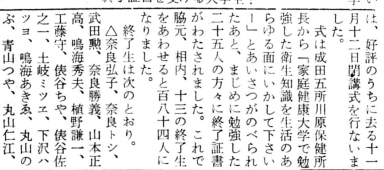 は、好評のうちに去る十一
月十二日閉講式を行ないま
した。
式は成田五所川原保健所
長から「家庭健康大学で勉
強した衛生知識を生活のあ
らゆる面にいかして下さい
」とあいさつがのべられ
たあと、まじめに勉強した
二十五人の方々に終了証書
がわたされました。これで
脇元、相内、十三の終了生
をあわせると百八十四人に
なりました。
終了生は次のとおり。
△奈良弘子、奈良トシ、
武田勲、奈良勝義、山本正
高、鳴海秀夫、植野謙一、
工藤守、俵谷ちゑ、俵谷佐
之一、土岐ミツヱ、下沢ハ
ツヨ、鳴海あきゑ、丸山の
ぶ、青山つや、丸山仁江、